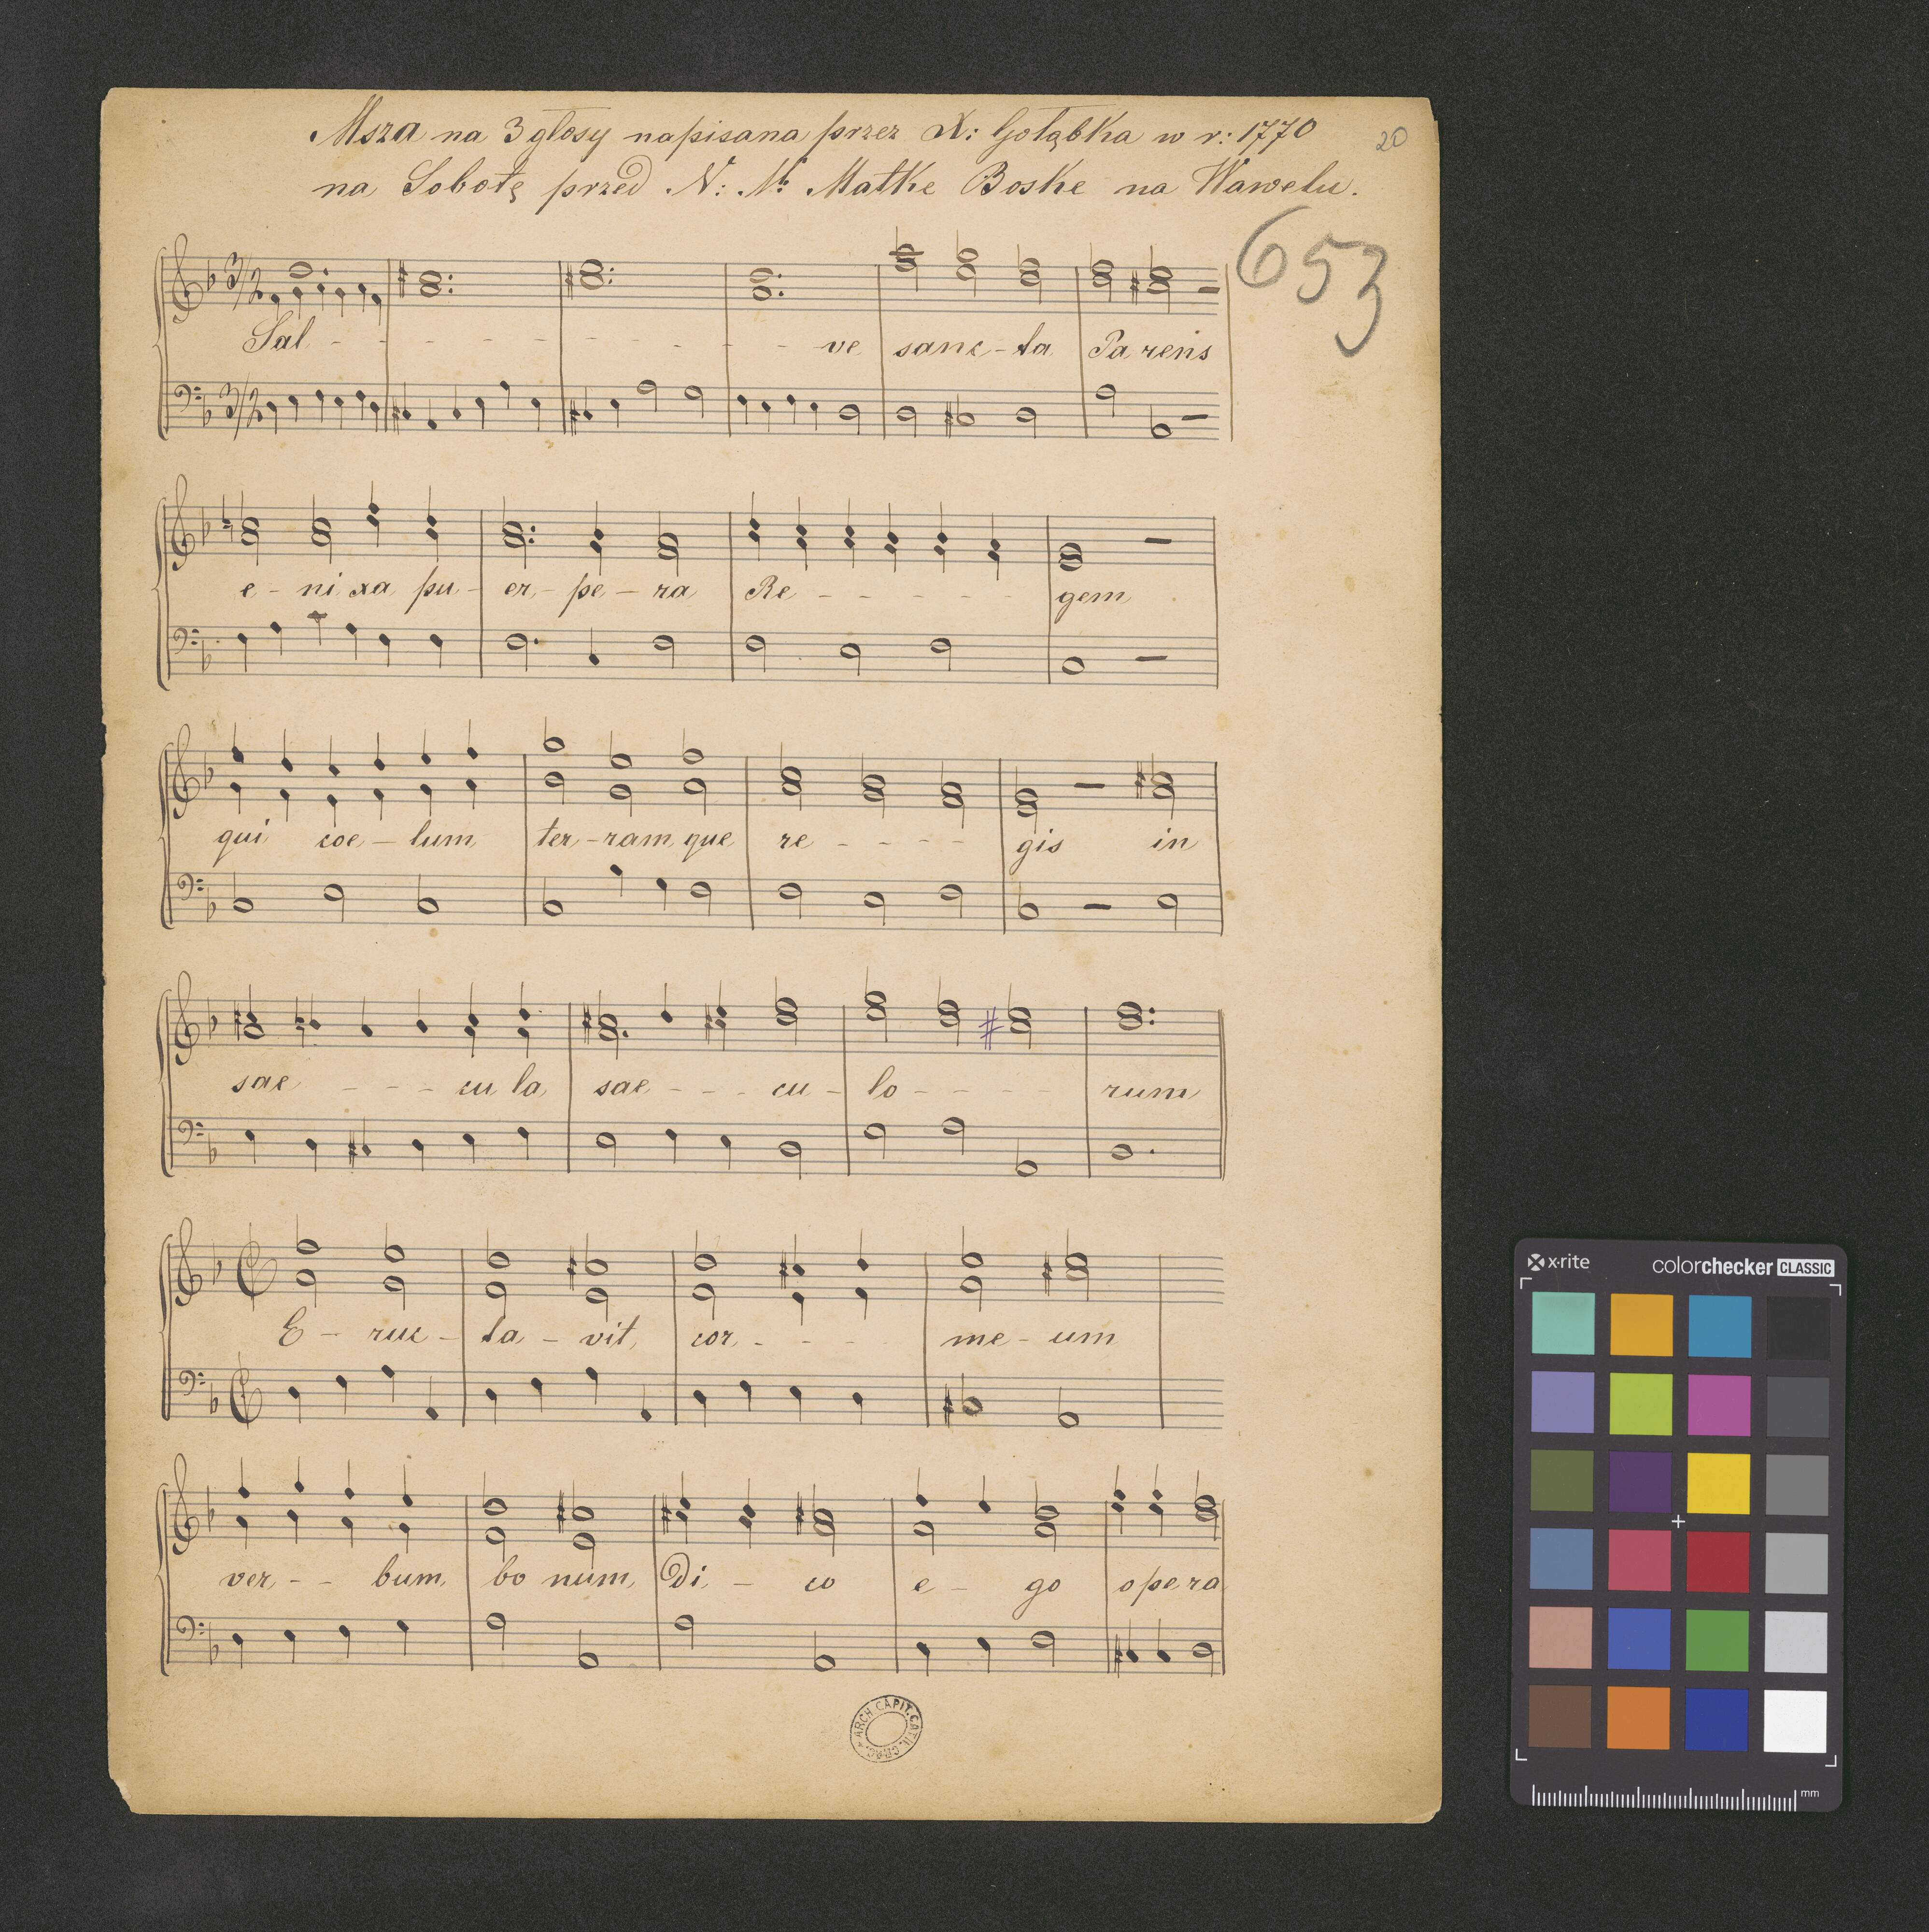 Msza na 3 głosy napisana przez X: Gołąbka w r: 1770
20
na Sobotę przed N: M: Matke Boske na Wawelu.
653
3/2
Sal - - - - - - - - - ve sanc - ta Pa rens
3/2
e - ni xa pu - er - pe - ra Re - - - - - gem
qui coe - lum ter - ram que re - - - - gis in
sae - - - cu la sae - - - cu - lo - - - - rum
E - ruc - ta - vit cor - - - - me - um
ver - - bum bo num Di - co e - go o pe ra
ARCH. CAPIT. CATH. CRAC.
x·rite colorchecker CLASSIC
mm